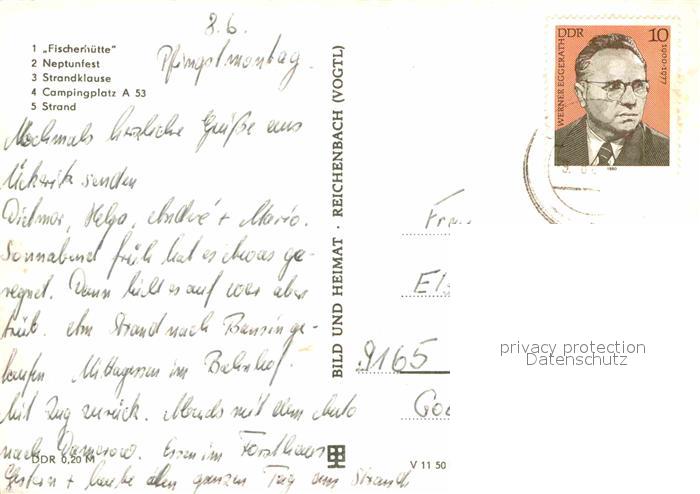 1 „Fischerhütte"
2 Neptunfest
3 Strandklause
4 Campingplatz A 53
5 Strand
8.6.
Pfingstmontag.
Nochmals herzliche Grüße aus
Ückeritz senden
Dietmar, Helga, André + Mario.
Sonnabend früh hat es etwas ge-
regnet. Dann hielt es auf war aber
trüb. Am Strand nach Bansin ge-
laufen Mittagessen im Bahnhof.
Mit Zug zurück. Abends mit dem Auto
nach Damerow. Essen im Forsthaus
Gestern + heute den ganzen Tag am Strand
DDR 0,20 M
BILD UND HEIMAT · REICHENBACH (VOGTL)
V 11 50
DDR 10
WERNER EGGERATH
1900-1977
1980
9165
privacy protection
Datenschutz